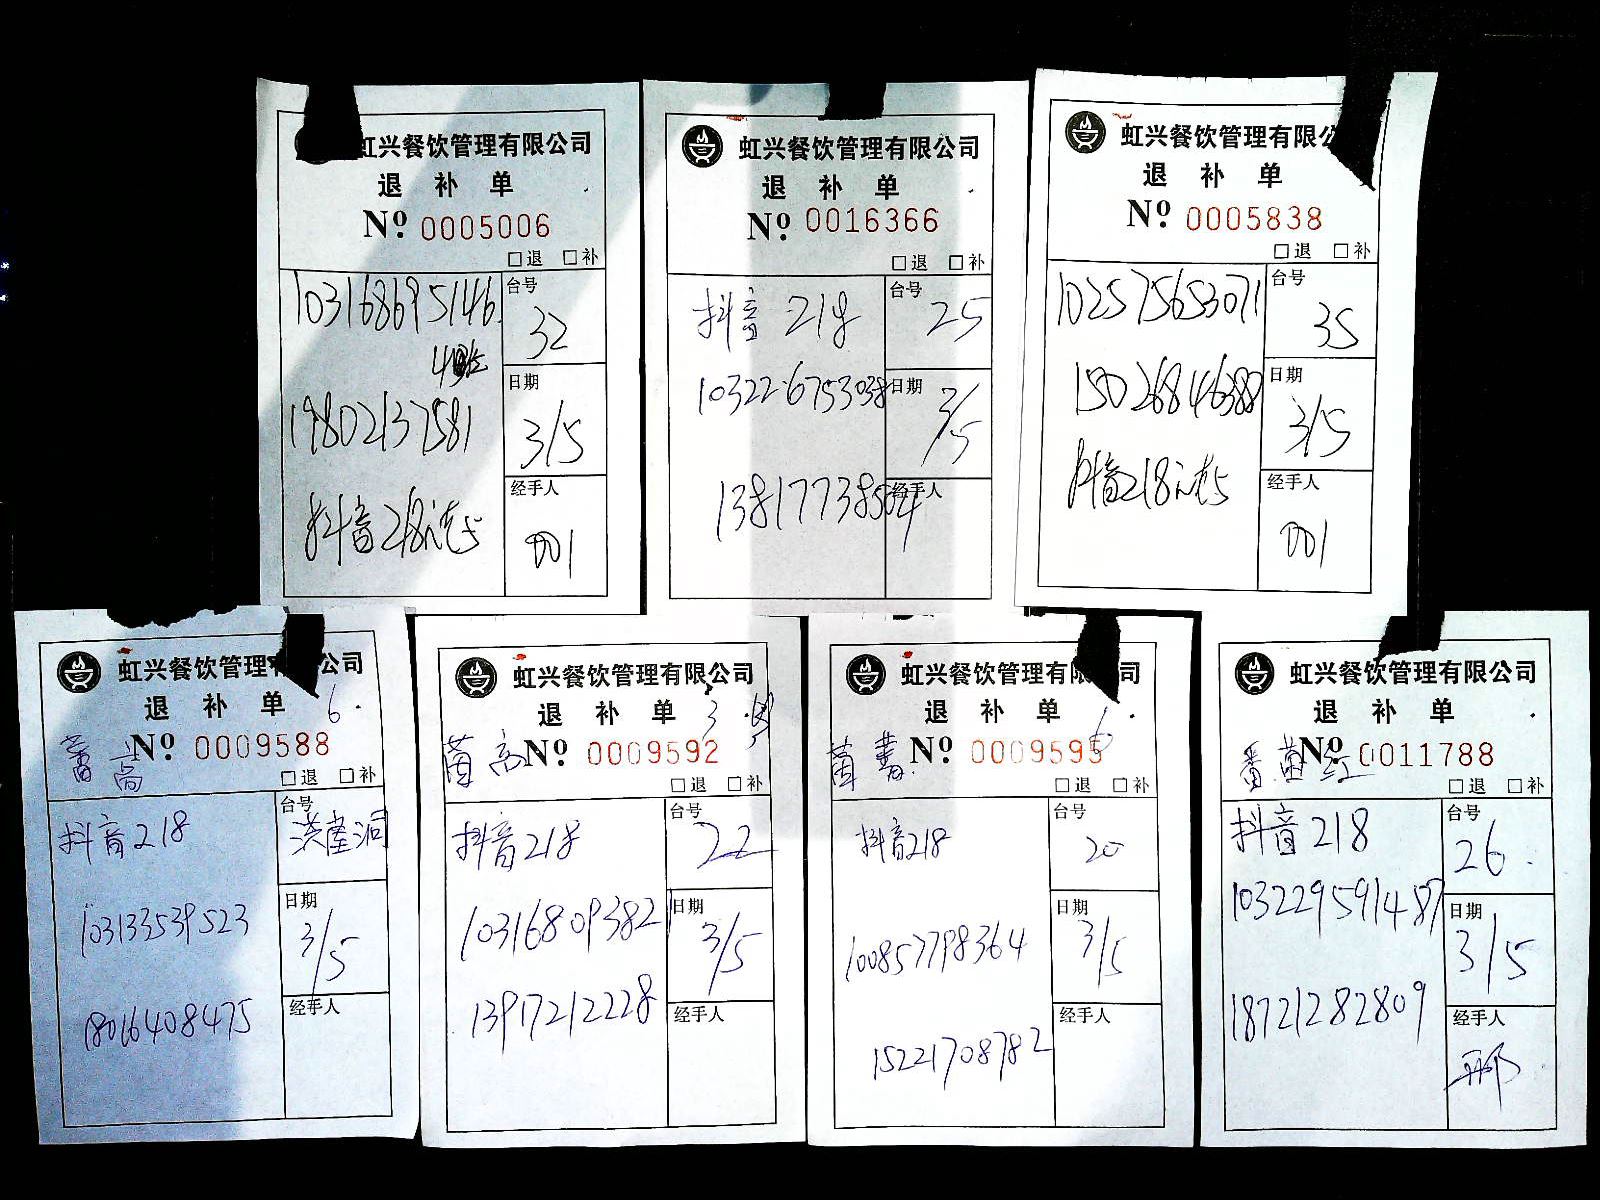 虹兴餐饮管理有限公司
退 补 单
Nº 0005006
□退 □补
103168695146
台号
32
19802137581
日期
3/5
抖音218
经手人
001
虹兴餐饮管理有限公司
退 补 单
Nº 0016366
□退 □补
抖音 218
台号
25
103226753038
日期
3/5
13817738504
经手人
虹兴餐饮管理有限公
退 补 单
Nº 0005838
□退 □补
102575653071
台号
35
15026846388
日期
3/5
抖音218
经手人
001
虹兴餐饮管理有限公司
退 补 单
6.
Nº 0009588
□退 □补
抖音218
台号
洪崖洞
103133539523
日期
3/5
18016408475
经手人
虹兴餐饮管理有限公司
退 补 单
3
Nº 0009592
□退 □补
抖音218
台号
22
103168093821
日期
3/5
13917212228
经手人
虹兴餐饮管理有限公司
退 补 单
6
Nº 0009595
□退 □补
抖音218
台号
20
100857798364
日期
3/5
15221708782
经手人
虹兴餐饮管理有限公司
退 补 单
番茴红
Nº 0011788
□退 □补
抖音218
台号
26
103229591487
日期
3/5
18721282809
经手人
邢